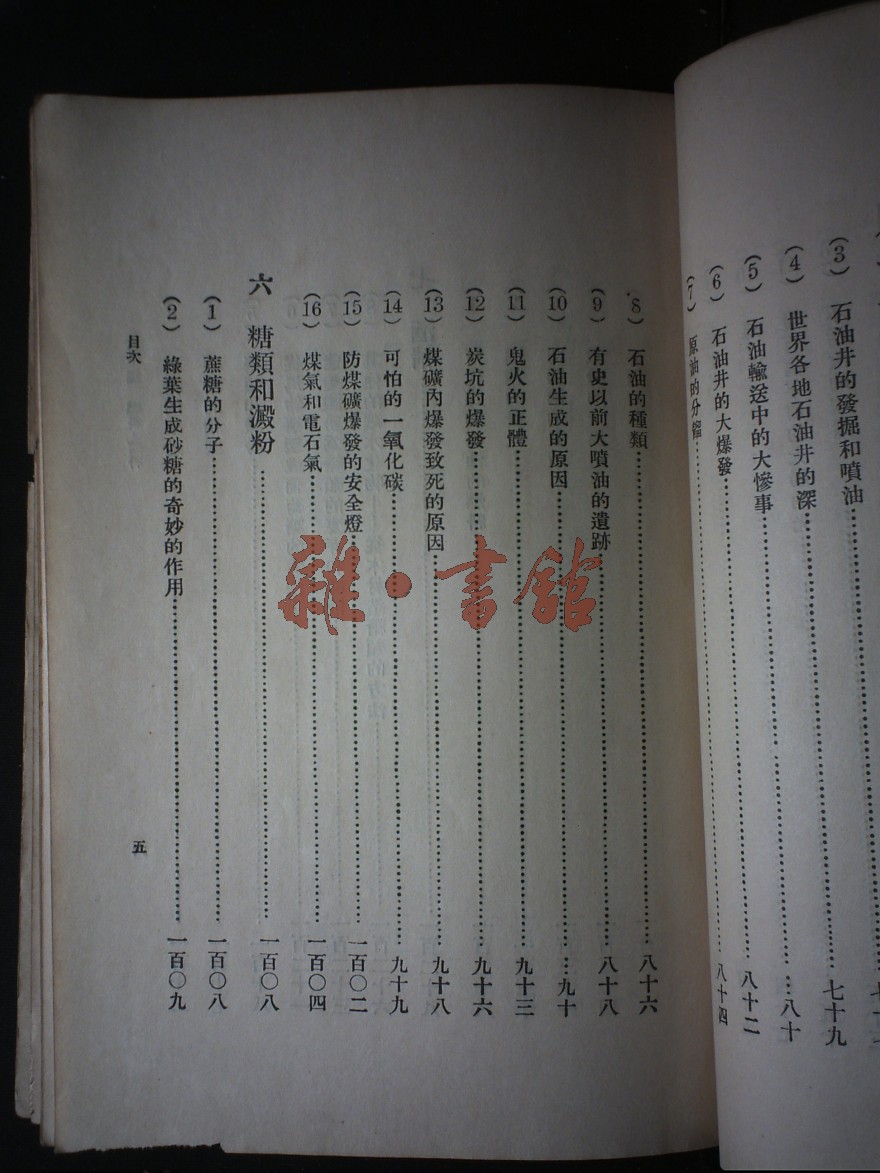 (3) 石油井的發掘和噴油……七十九
(4) 世界各地石油井的深……八十
(5) 石油輸送中的大慘事……八十二
(6) 石油井的大爆發……八十四
(7) 原油的分餾
(8) 石油的種類……八十六
(9) 有史以前大噴油的遺跡……八十八
(10) 石油生成的原因……九十
(11) 鬼火的正體……九十三
(12) 炭坑的爆發……九十六
(13) 煤礦內爆發致死的原因……九十八
(14) 可怕的一氧化碳……九十九
(15) 防煤礦爆發的安全燈……一百〇二
(16) 煤氣和電石氣……一百〇四
六 糖類和澱粉……一百〇八
(1) 蔗糖的分子……一百〇八
(2) 綠葉生成砂糖的奇妙的作用……一百〇九
目次 五
雜·書館